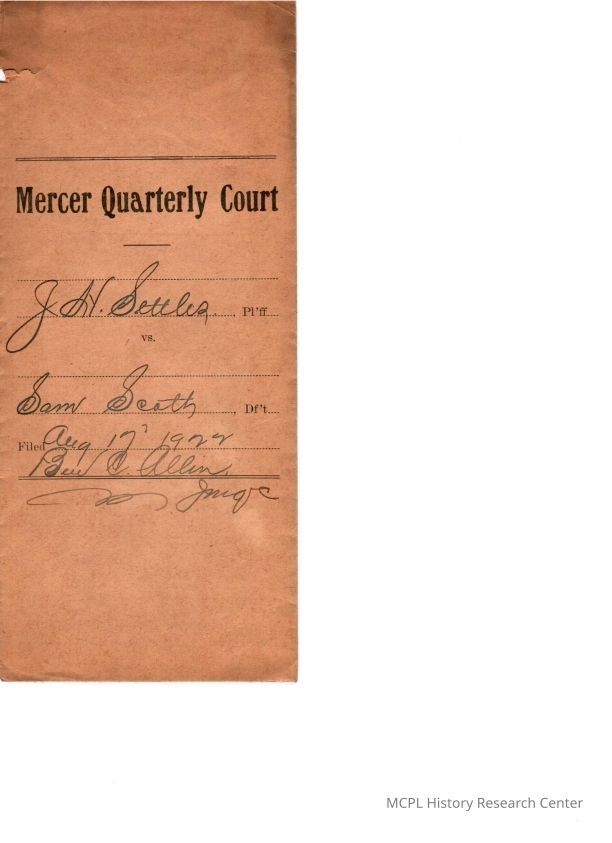 Mercer Quarterly Court
J. H. Settles, Pl'ff
vs.
Sam Scott, Df't.
Filed Aug 17' 1922
Ben C. Allin,
JMQC
MCPL History Research Center